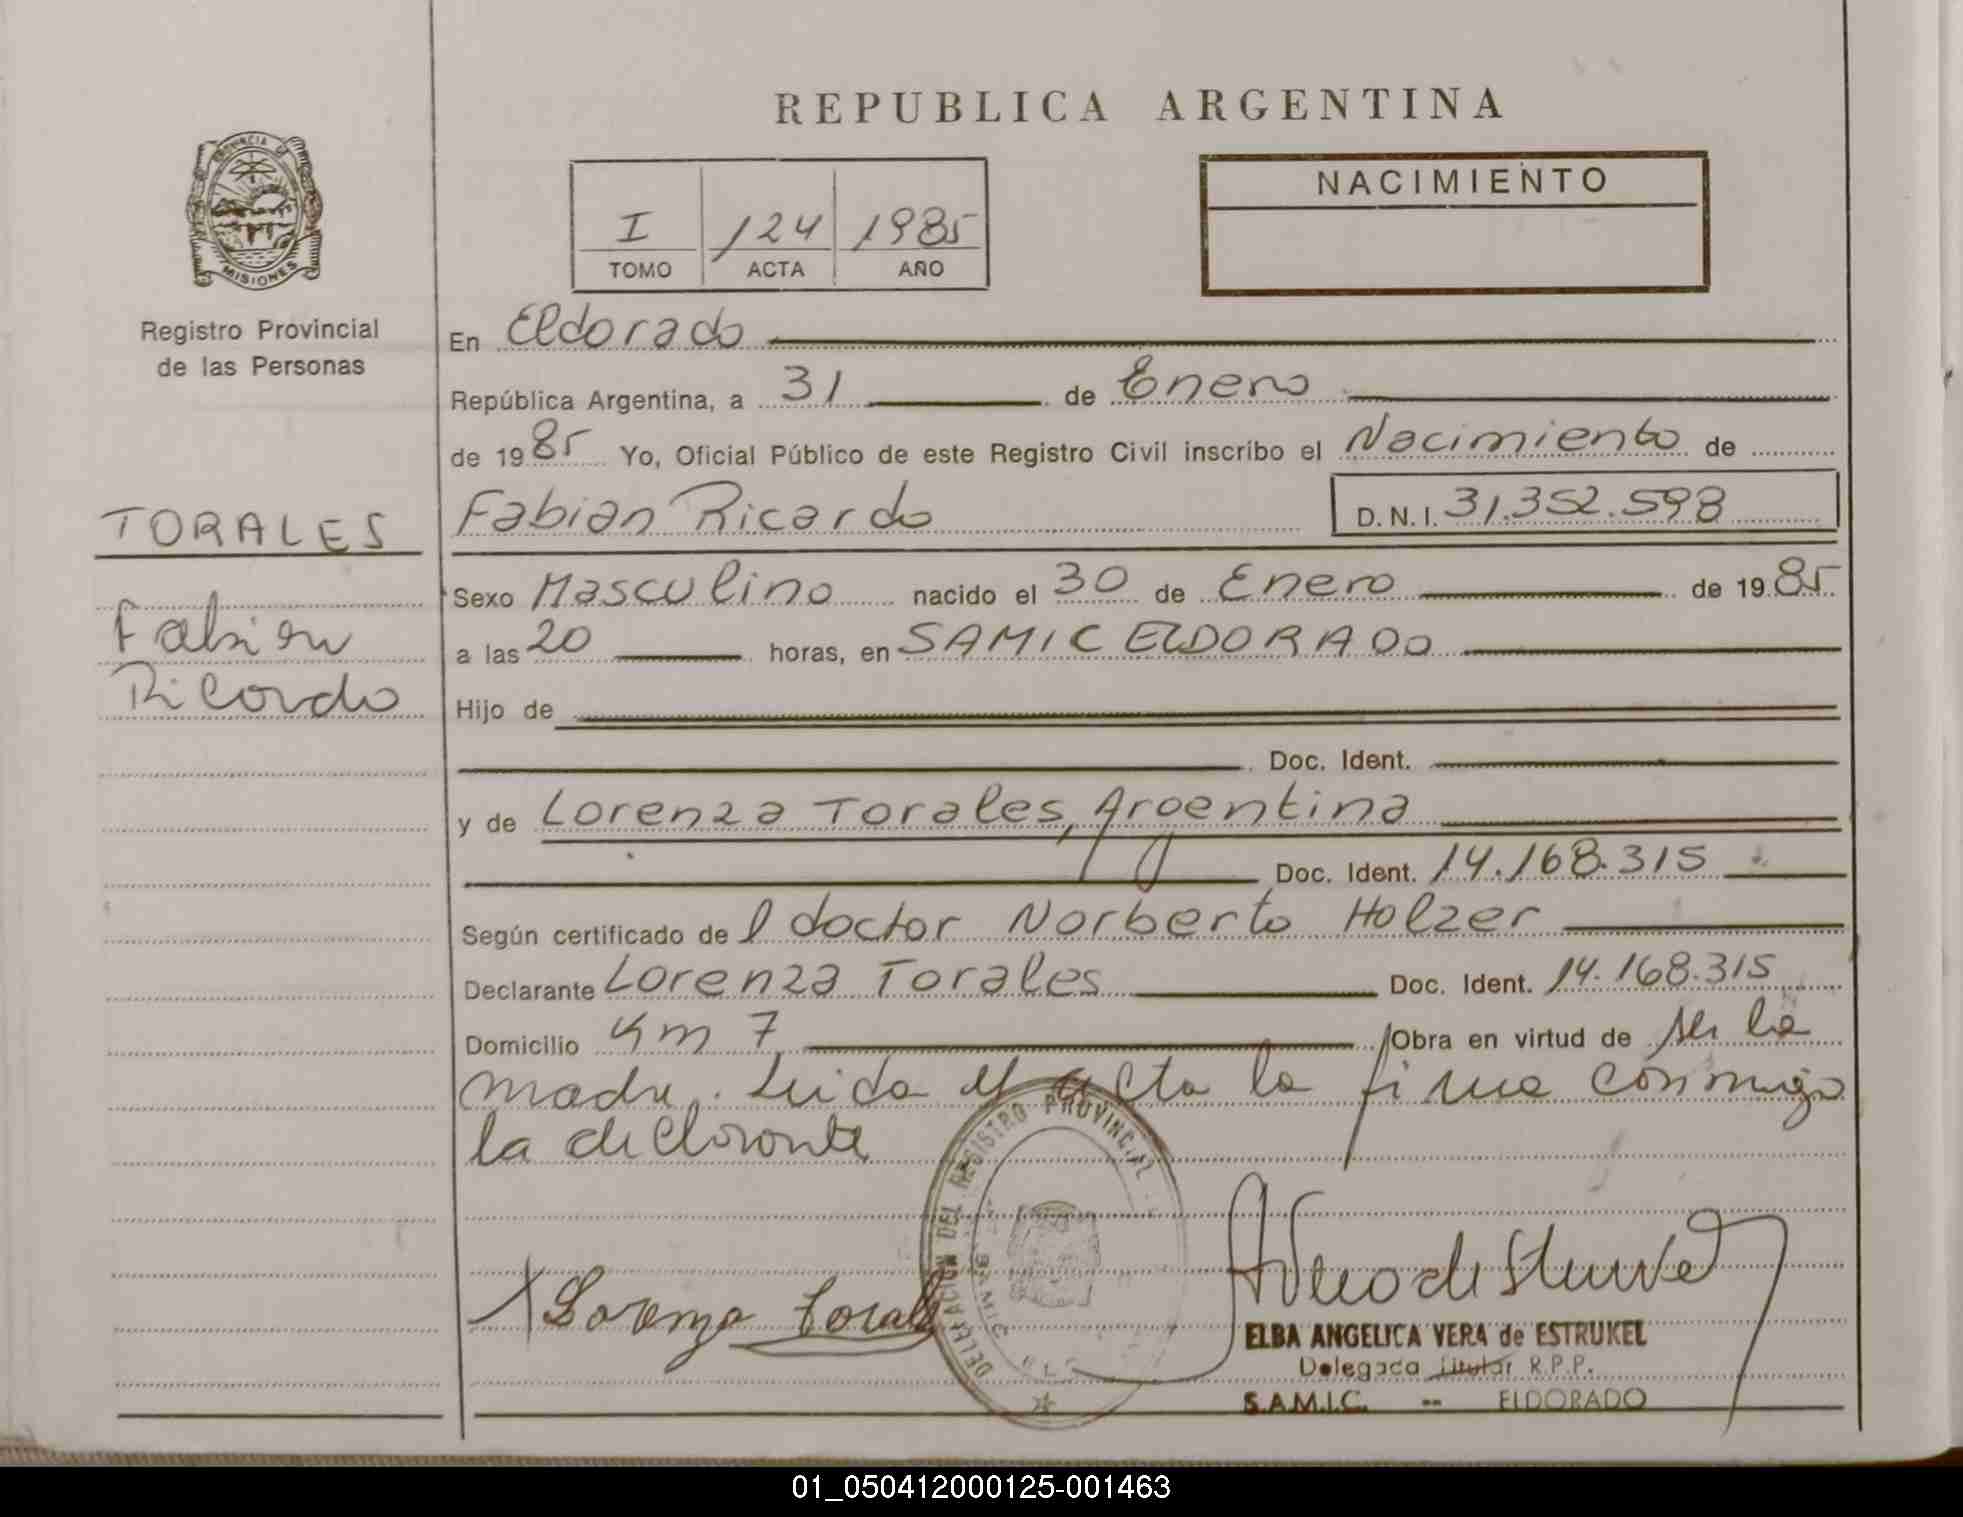 REPUBLICA ARGENTINA
PROVINCIA DE
MISIONES
Registro Provincial
de las Personas
I 124 1985
TOMO ACTA AÑO
NACIMIENTO
En Eldorado
República Argentina, a 31 de Enero
de 1985 Yo, Oficial Público de este Registro Civil inscribo el Nacimiento de
Fabian Ricardo D.N.I. 31.352.598
TORALES
Fabian
Ricardo
Sexo Masculino nacido el 30 de Enero de 1985
a las 20 horas, en SAMIC ELDORADO
Hijo de
Doc. Ident.
y de Lorenza Torales, Argentina
Doc. Ident. 14.168.315
Según certificado del doctor Norberto Holzer
Declarante Lorenza Torales Doc. Ident. 14.168.315
Domicilio Km 7 Obra en virtud de ser la
madre. Leida el acta la firma conmigo
la declarante
DELEGACION DEL REGISTRO PROVINCIAL
Lorenza Torales
ELBA ANGELICA VERA de ESTRUKEL
Delegada Titular R.P.P.
S.A.M.I.C. -- ELDORADO
01_050412000125-001463